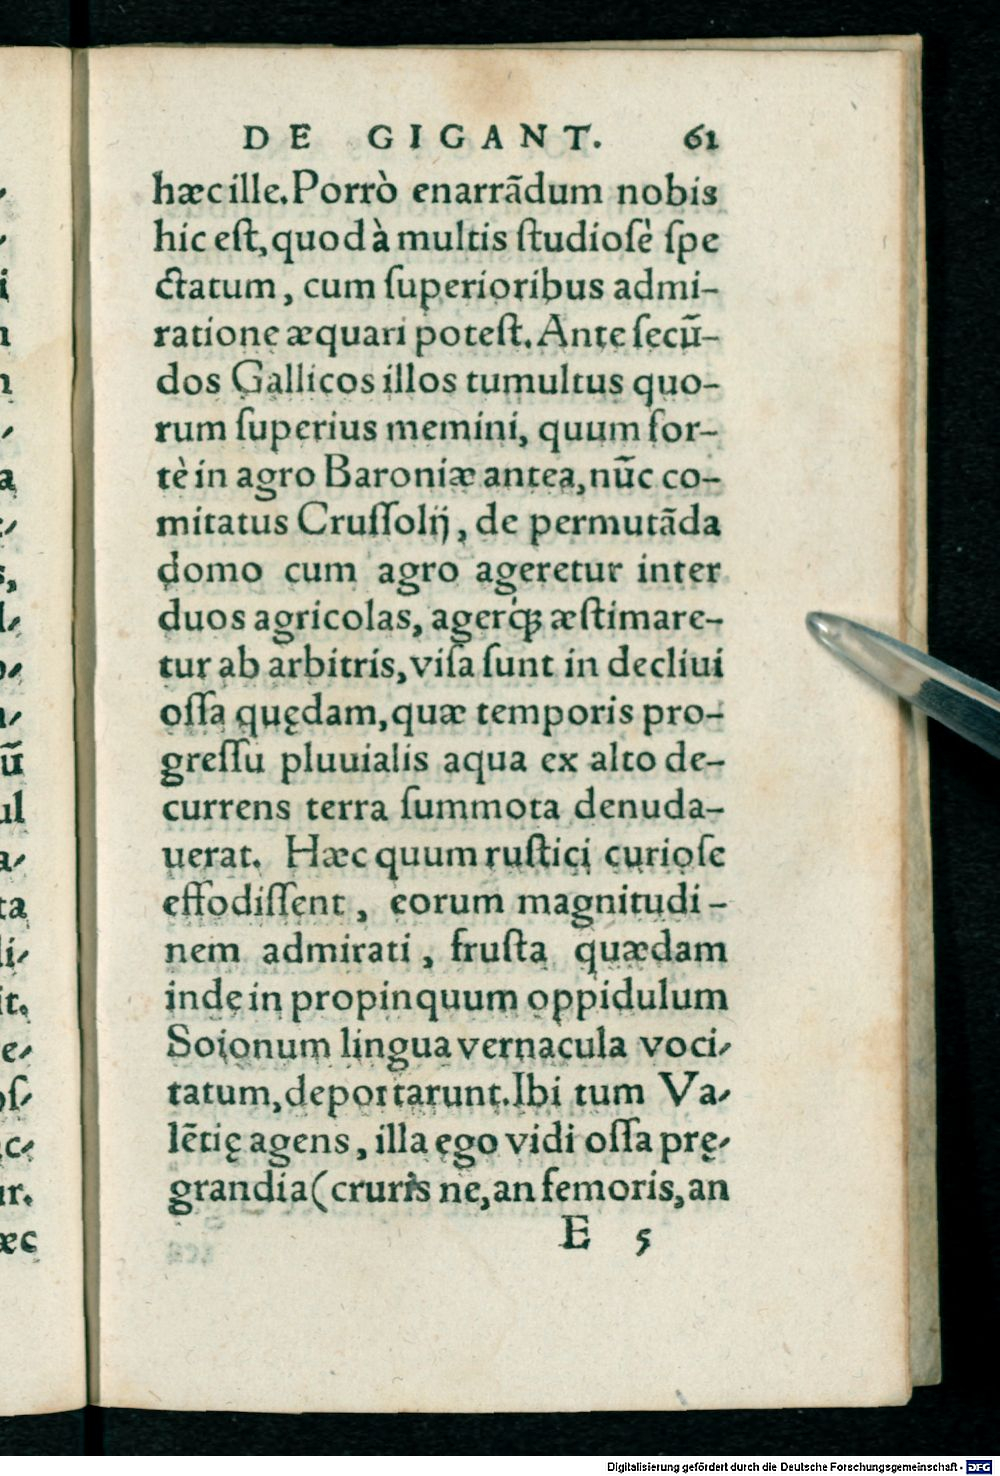 DE GIGANT. 61
hæc ille. Porrò enarrãdum nobis
hic eſt, quod à multis ſtudioſè ſpe
ctatum, cum ſuperioribus admi-
ratione æquari poteſt. Ante ſecũ-
dos Gallicos illos tumultus quo-
rum ſuperius memini, quum for-
tè in agro Baroniæ antea, nũc co-
mitatus Cruſſolij, de permutãda
domo cum agro ageretur inter
duos agricolas, agerq́; æſtimare-
tur ab arbitris, viſa ſunt in decliui
oſſa quędam, quæ temporis pro-
greſſu pluuialis aqua ex alto de-
currens terra ſummota denuda-
uerat. Hæc quum ruſtici curioſe
effodiſſent, eorum magnitudi-
nem admirati, fruſta quædam
inde in propinquum oppidulum
Soionum lingua vernacula voci-
tatum, deportarunt. Ibi tum Va-
lẽtię agens, illa ego vidi oſſa prę-
grandia (cruris ne, an femoris, an
E 5
Digitalisierung gefördert durch die Deutsche Forschungsgemeinschaft - DFG